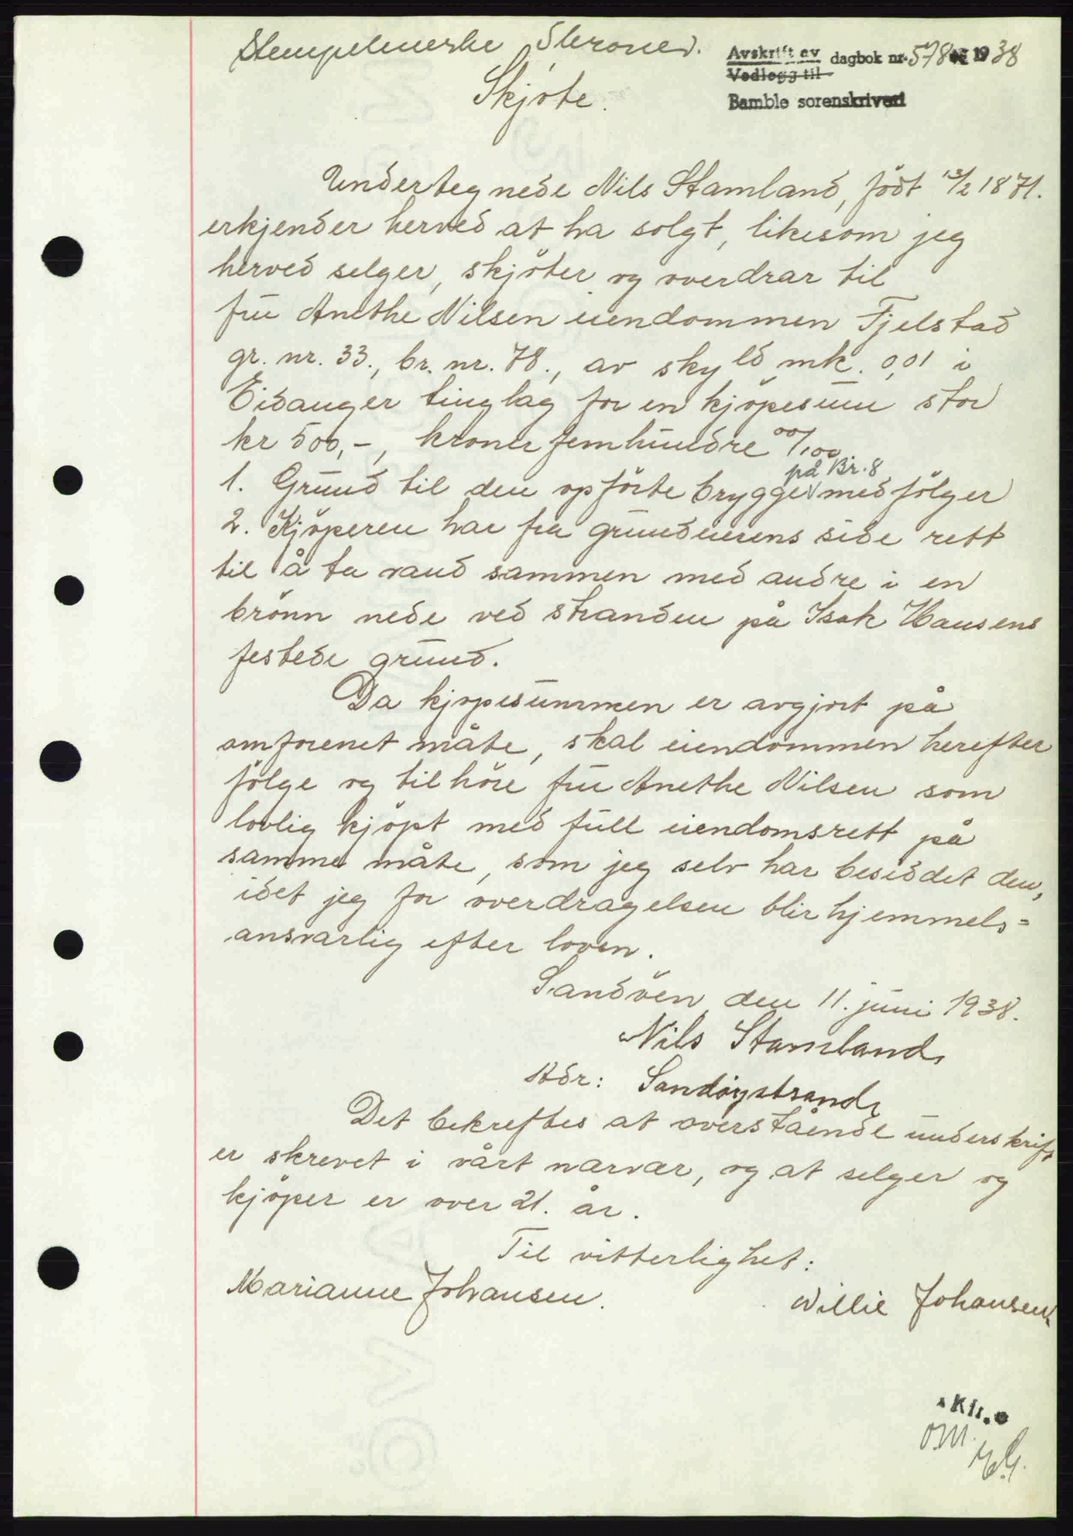 Stempelmerke 5 kroner.
Avskrift av
Vedlegg til
dagbok nr. 578 19 38
Bamble sorenskriveri
Skjöte.
Undertegnede Nils Stamland, född 13/2 1871.
erkjender herved at ha solgt, likesom jeg
herved selger, skjöter og overdrar til
fru Anethe Nilsen eiendommen Fjelstad
gr. nr. 33., br. nr. 78., av skyld mk. 0,01 i
Eidanger tinglag for en kjöpesum stor
kr 500,-, kroner femhundre 00/100
på Br. 8
1. Grund til den opförte brygge medfölger
2. Kjöperen har fra grundeierens side rett
til å ta vand sammen med andre i en
brönn nede ved stranden på Isak Hansens
festede grund.
Da kjöpesummen er avgjort på
omforenet måte, skal eiendommen herefter
fölge og tilhöre fru Anethe Nilsen som
lovlig kjöpt med full eiendomsrett på
samme måte, som jeg selv har besiddet den,
idet jeg for overdragelsen blir hjemmels=
ansvarlig efter loven.
Sandöen, den 11. juni 1938.
Nils Stamland
Adr: Sandöystrand
Det bekreftes at overstående underskrift
er skrevet i vårt nærvær, og at selger og
kjöper er over 21. år.
Til vitterlighet:
Marianne Johansen.
Willie Johansen